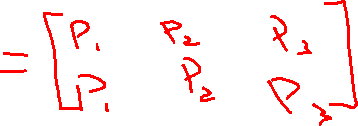 = [ P₁ P₂ P₃
P₁ P₂ P₃ ]